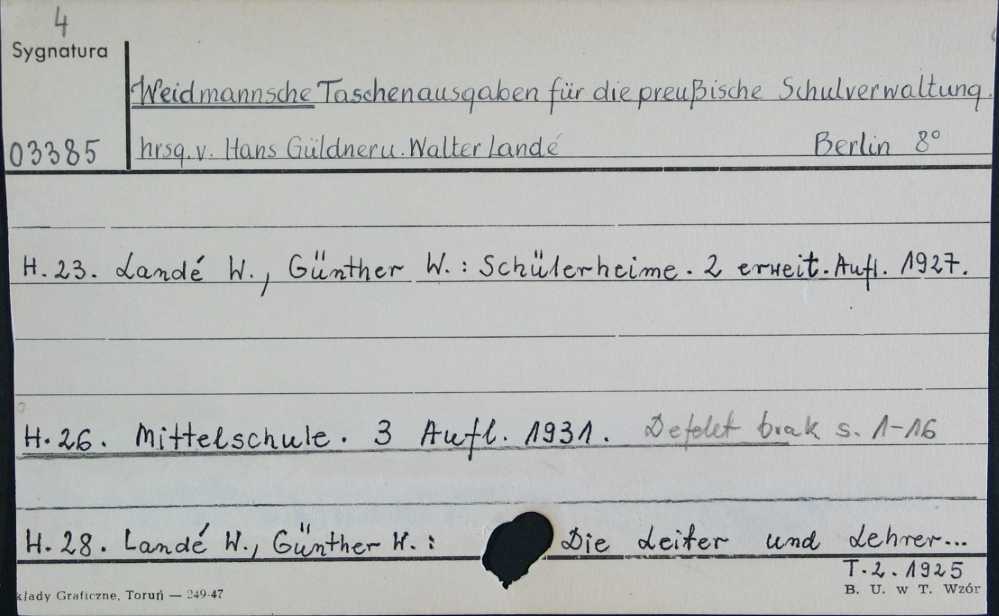 4
Sygnatura
Weidmannsche Taschenausgaben für die preußische Schulverwaltung.
03385 hrsg. v. Hans Güldner u. Walter Landé Berlin 8°
H. 23. Landé W., Günther W.: Schülerheime. 2 erweit. Aufl. 1927.
H. 26. Mittelschule. 3 Aufl. 1931. Defekt brak s. 1-16
H. 28. Landé W., Günther W.: Die Leiter und Lehrer...
T. 2. 1925
kłady Graficzne, Toruń — 249-47 B. U. w T. Wzór